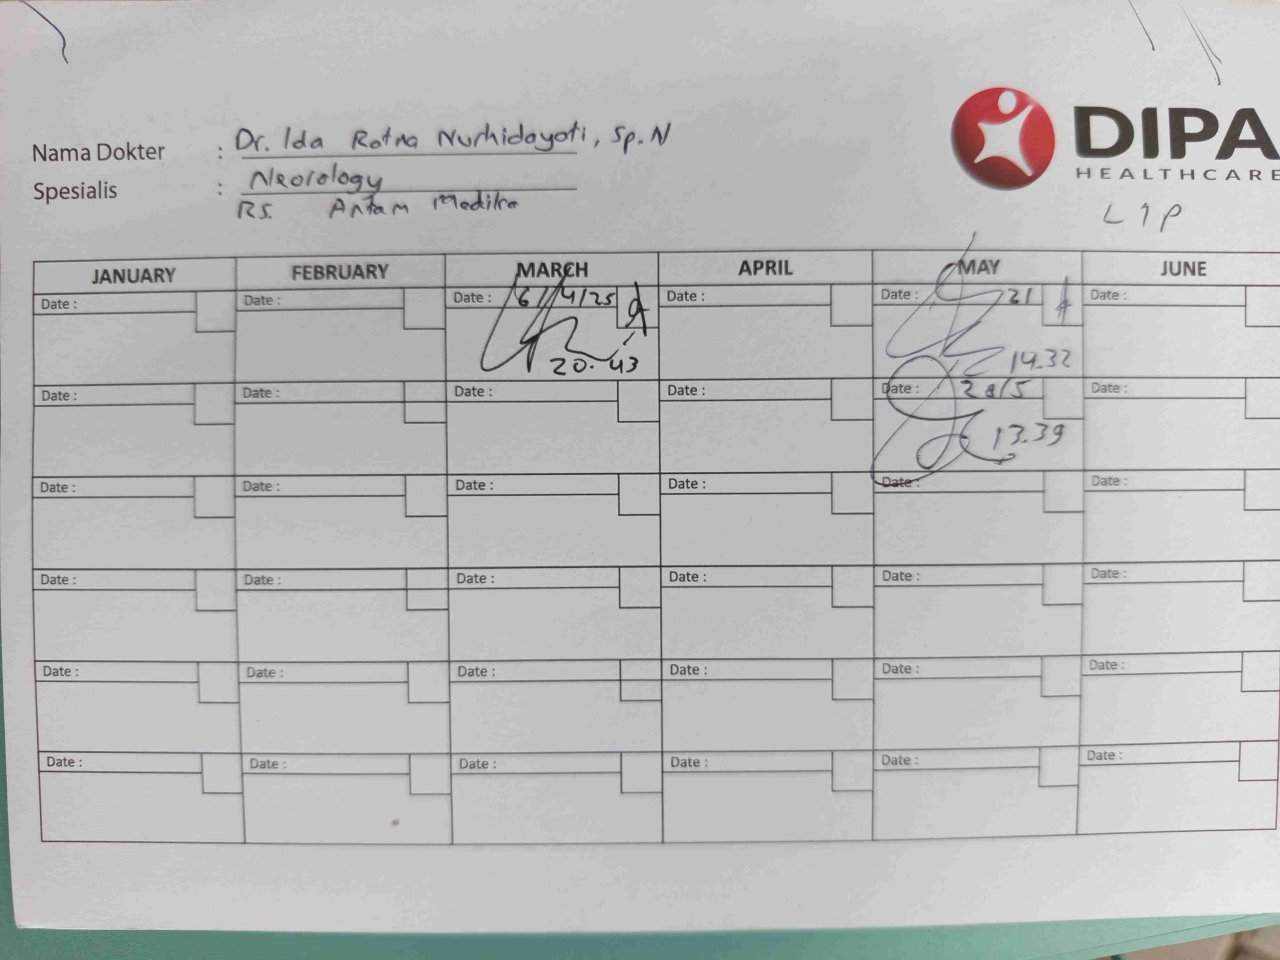 DIPA
HEALTHCARE
L 1 P
Nama Dokter : Dr. Ida Ratna Nurhidayati, Sp.N
Spesialis : Neorology
RS. Antam Medika
JANUARY FEBRUARY MARCH APRIL MAY JUNE
Date : Date : Date : 6/4/25 Date : Date : 21 Date :
20.43 14.32
Date : Date : Date : Date : Date : 28/5 Date :
13.39
Date : Date : Date : Date : Date : Date :
Date : Date : Date : Date : Date : Date :
Date : Date : Date : Date : Date : Date :
Date : Date : Date : Date : Date : Date :